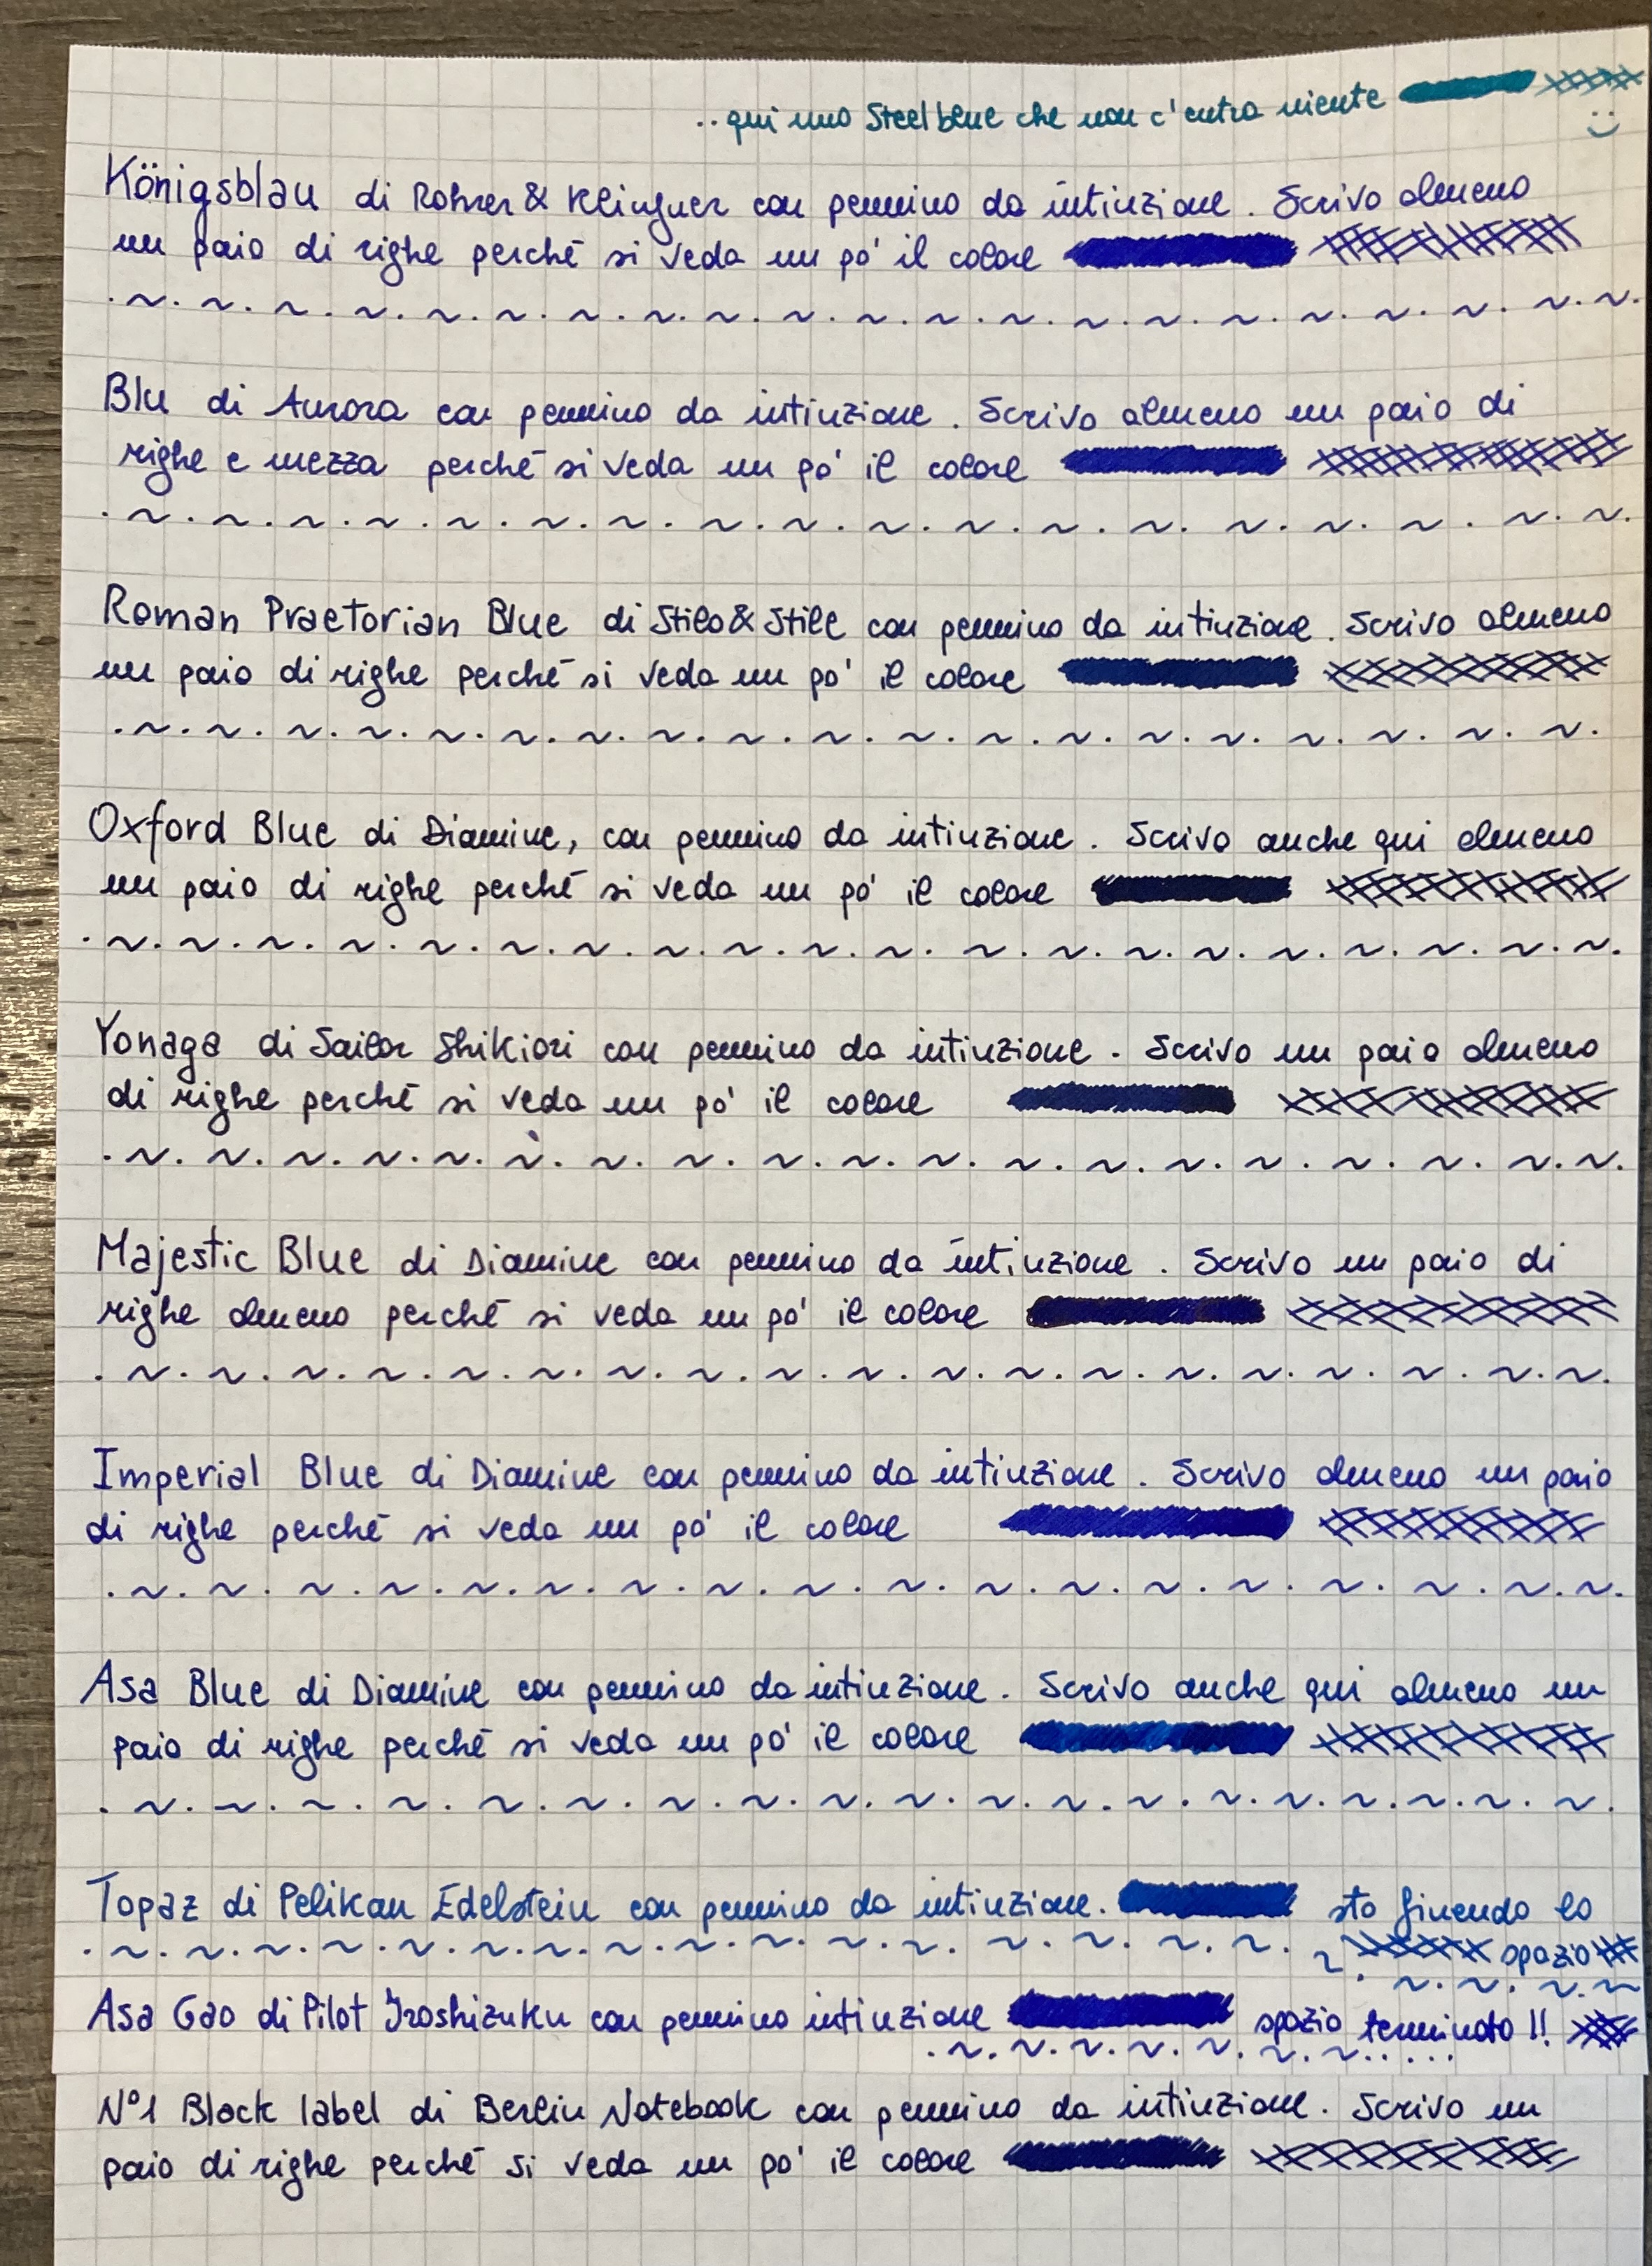 ..qui uno Steelblue che non c'entra niente
Königsblau di Rohrer & Klingner con pennino da intinzione. Scrivo almeno
un paio di righe perché si veda un po' il colore
Blu di Aurora con pennino da intinzione. Scrivo almeno un paio di
righe e mezza perché si veda un po' il colore
Roman Praetorian Blue di Stilo&Stile con pennino da intinzione. Scrivo almeno
un paio di righe perché si veda un po' il colore
Oxford Blue di Diamine, con pennino da intinzione. Scrivo anche qui almeno
un paio di righe perché si veda un po' il colore
Yonaga di Sailor Shikiori con pennino da intinzione. Scrivo un paio almeno
di righe perché si veda un po' il colore
Majestic Blue di Diamine con pennino da intinzione. Scrivo un paio di
righe almeno perché si veda un po' il colore
Imperial Blue di Diamine con pennino da intinzione. Scrivo almeno un paio
di righe perché si veda un po' il colore
Asa Blue di Diamine con pennino da intinzione. Scrivo anche qui almeno un
paio di righe perché si veda un po' il colore
Topaz di Pelikan Edelstein con pennino da intinzione. sto finendo lo
spazio
Asa Gao di Pilot Iroshizuku con pennino intinzione spazio terminato!!
N°1 Black label di Berlin Notebook con pennino da intinzione. Scrivo un
paio di righe perché si veda un po' il colore